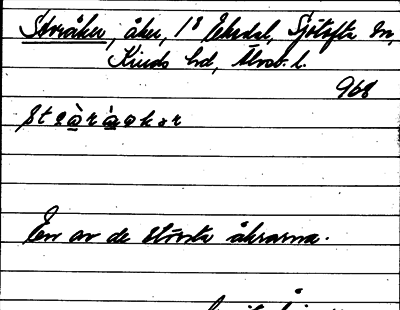 Storåker, åker, 1⁸ Ekedal, Sjötofta sn,
Kinds hd, Älvsb. l.
968
En av de största åkrarna.